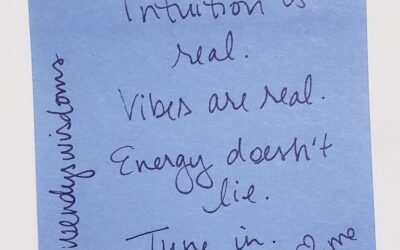 Intuition is
real.
Vibes are real.
Energy doesn't
lie.
Tune in.
me
wendyswisdoms